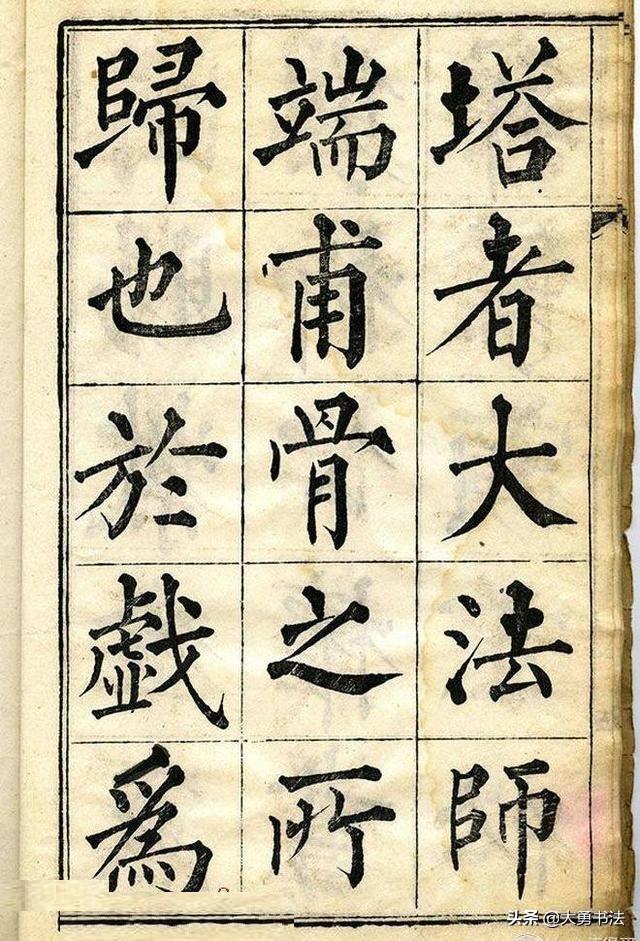 塔者大法師
端甫骨之所
歸也於戲為
头条 @大勇书法